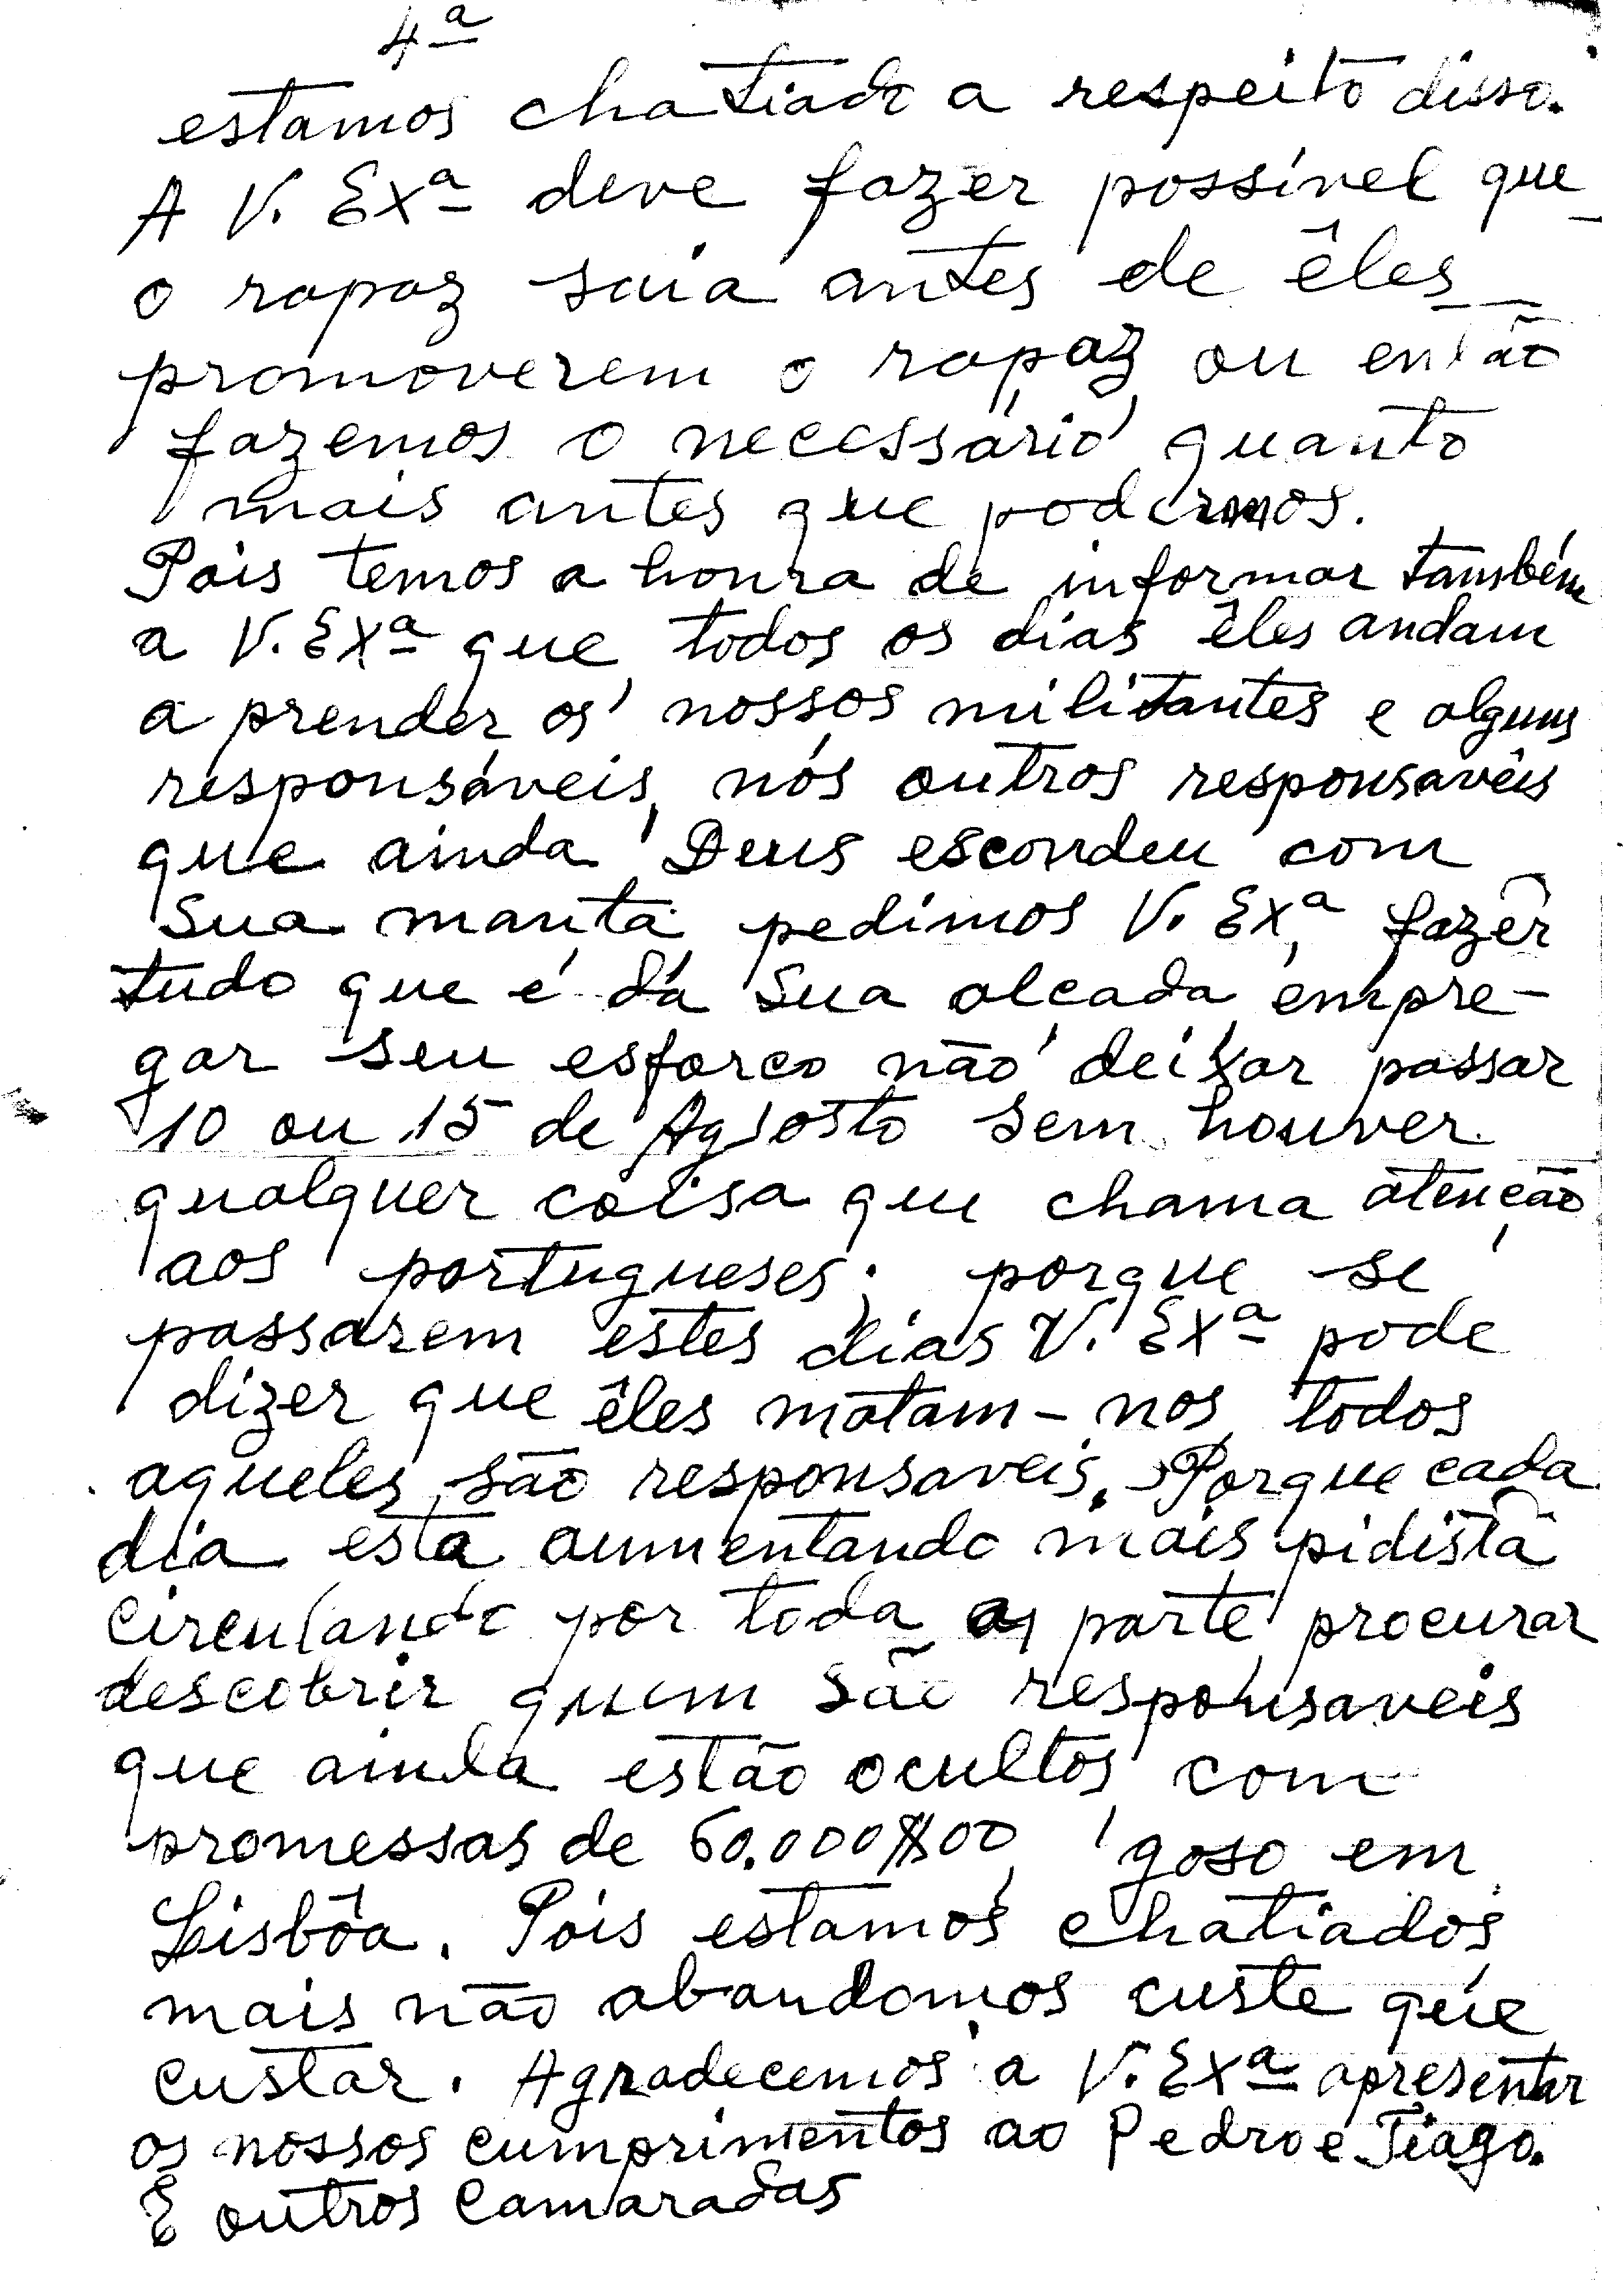 4ª
estamos chatiado a respeito disso.
A V. Exª deve fazer possível que
o rapaz saia antes de êles
promoverem o rapaz, ou então
fazemos o necessário quanto
mais antes que podermos.
Pois temos a honra de informar também
a V. Exª que todos os dias êles andam
a prender os nossos militantes e alguns
responsáveis, nós outros responsavêis
que ainda Deus escondeu com
Sua manta pedimos V. Exª, fazêr
tudo que é da Sua alçada empre-
gar seu esforço não deixar passar
10 ou 15 de Agosto sem houver
qualquer coisa que chama atenção
aos portugueses; porque se
passarem estes dias V. Exª pode
dizer que êles matam-nos todos
aqueles são responsaveis. Porque cada
dia esta aumentando mais pidista
circulando por toda a parte procurar
descobrir quem são responsaveis
que ainda estão ocultos com
promessas de 60.000$00, goso em
Lisbôa. Pois estamos chatiados
mais não abandomos custe que
custar. Agradecemos a V. Exª apresentar
os nossos cumprimentos ao Pedro e Tiago.
E outros Camaradas